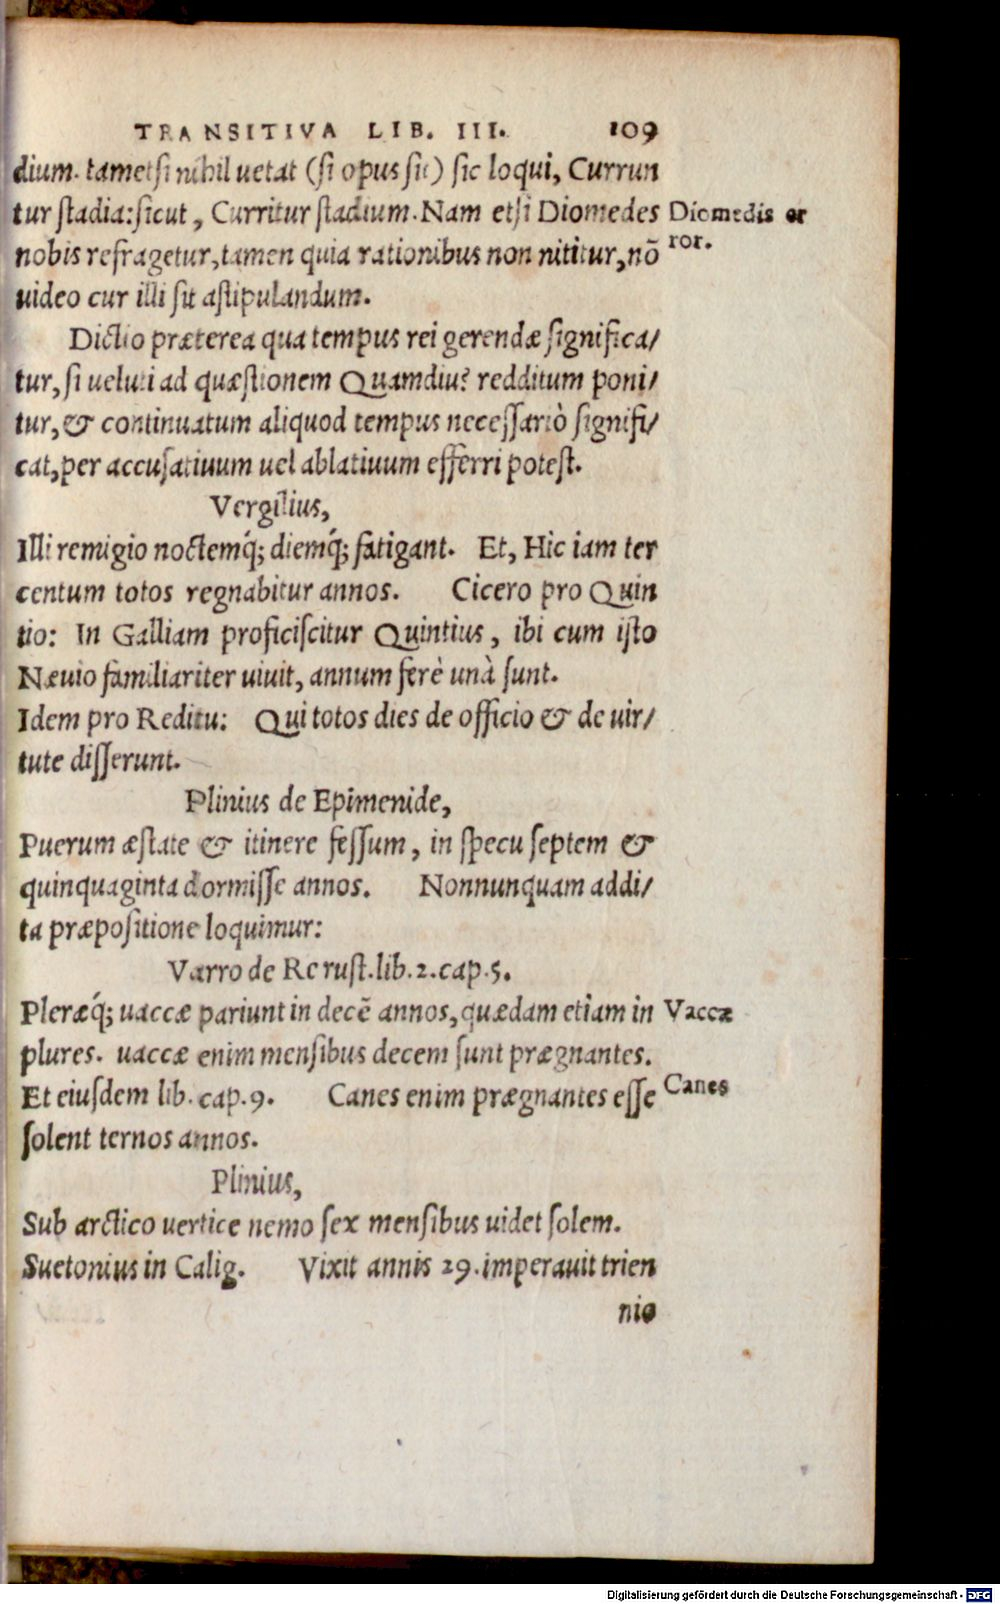 TRANSITIVA LIB. III. 109
dium. tametsi nihil uetat (si opus sit) sic loqui, Currun
tur stadia: sicut, Curritur stadium. Nam etsi Diomedes
Diomedis er
ror.
nobis refragetur, tamen quia rationibus non nititur, nõ
uideo cur illi sit astipulandum.
Dictio præterea qua tempus rei gerendæ significa/
tur, si ueluti ad quæstionem Quamdiu? redditum poni/
tur, & continuatum aliquod tempus necessariò signifi/
cat, per accusatiuum uel ablatiuum efferri potest.
Vergilius,
Illi remigio noctemq́; diemq́; fatigant. Et, Hic iam ter
centum totos regnabitur annos. Cicero pro Quin
tio: In Galliam proficiscitur Quintius, ibi cum isto
Næuio familiariter uiuit, annum ferè unà sunt.
Idem pro Reditu: Qui totos dies de officio & de uir/
tute disserunt.
Plinius de Epimenide,
Puerum æstate & itinere fessum, in specu septem &
quinquaginta dormisse annos. Nonnunquam addi/
ta præpositione loquimur:
Varro de Re rust. lib. 2. cap. 5.
Pleræq́; uaccæ pariunt in decẽ annos, quædam etiam in
Vaccæ
plures. uaccæ enim mensibus decem sunt prægnantes.
Et eiusdem lib. cap. 9. Canes enim prægnantes esse
Canes
solent ternos annos.
Plinius,
Sub arctico uertice nemo sex mensibus uidet solem.
Suetonius in Calig. Vixit annis 29. imperauit trien
nio
Digitalisierung gefördert durch die Deutsche Forschungsgemeinschaft - DFG